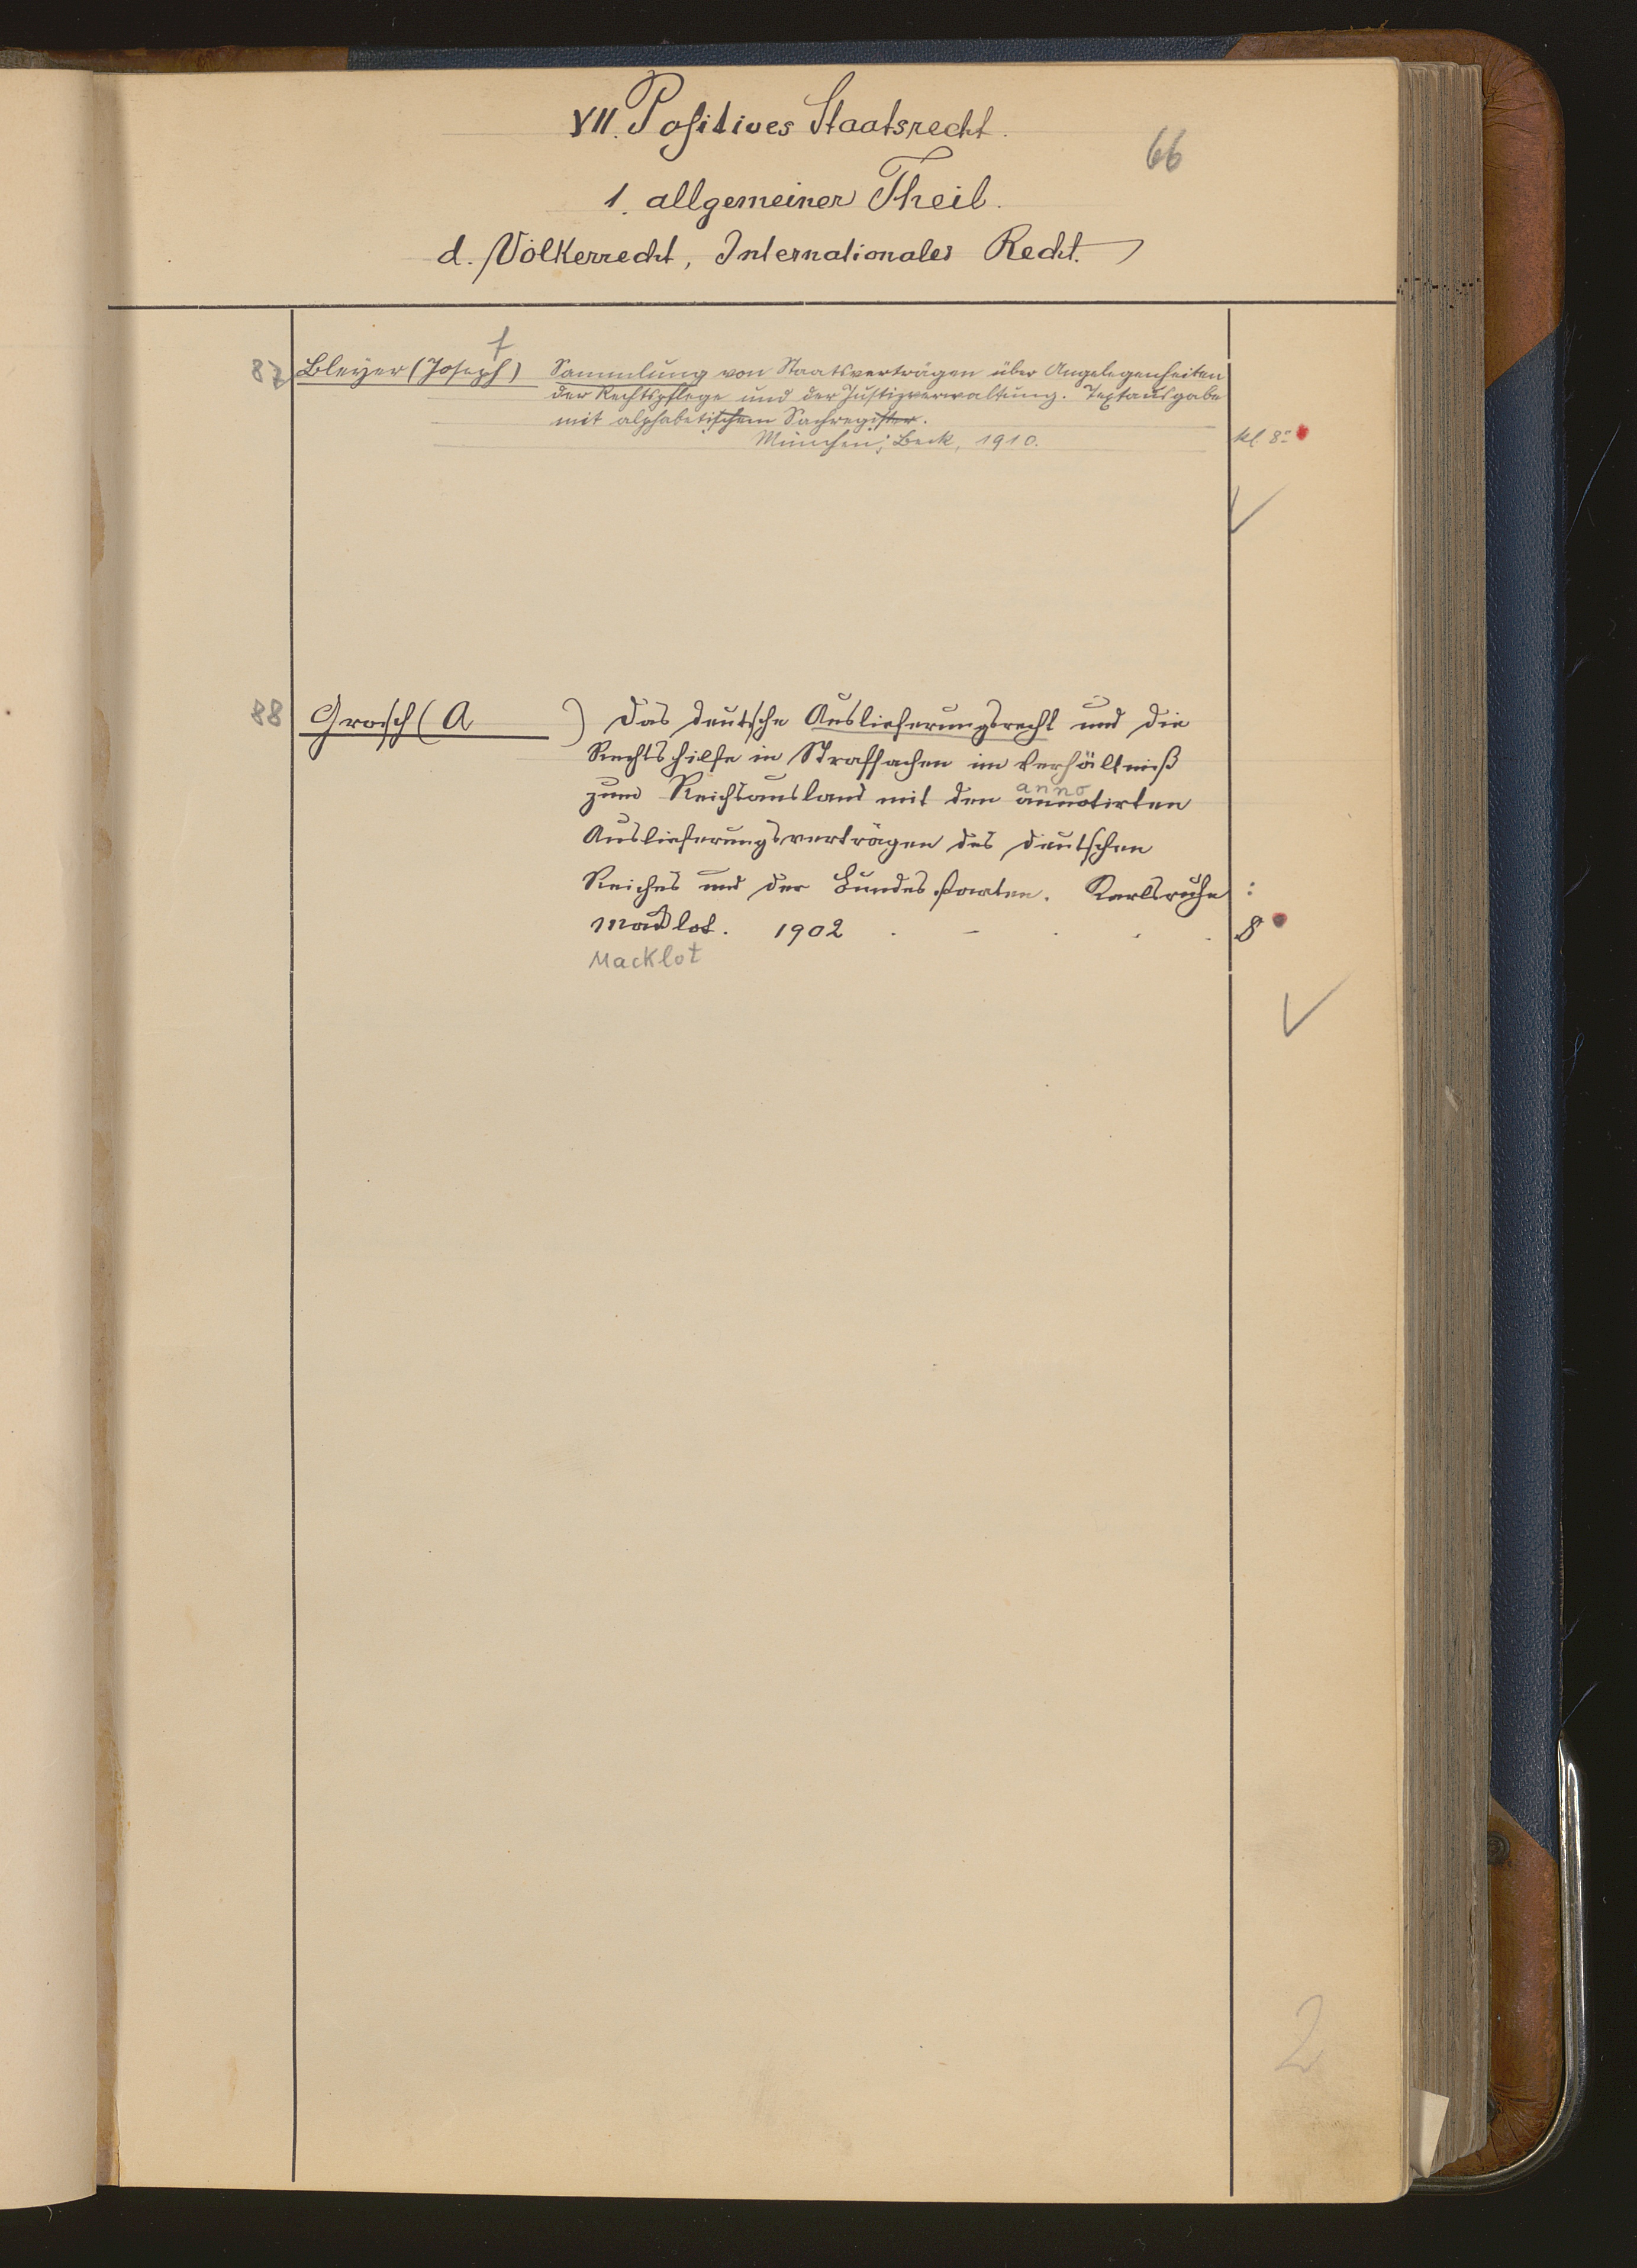 VII. Positives Staatsrecht.
66
1. allgemeiner Theil.
d. Völkerrecht, Internationales Recht.
87 Bleyer (Joseph) Sammlung von Staatsverträgen über Angelegenheiten
der Rechtspflege und der Justizverwaltung. Textausgabe
mit alphabetischem Sachregister.
München; Beck, 1910. kl. 8°
88 Grosch (A ) Das deutsche Auslieferungsrecht und die
Rechtshilfe in Strafsachen im Verhältniß
anno
zum Reichsausland mit den annotirten
Auslieferungsverträgen des deutschen
Reiches und der Bundesstaaten. Karlsruhe :
Macklot. 1902 8
Macklot
2